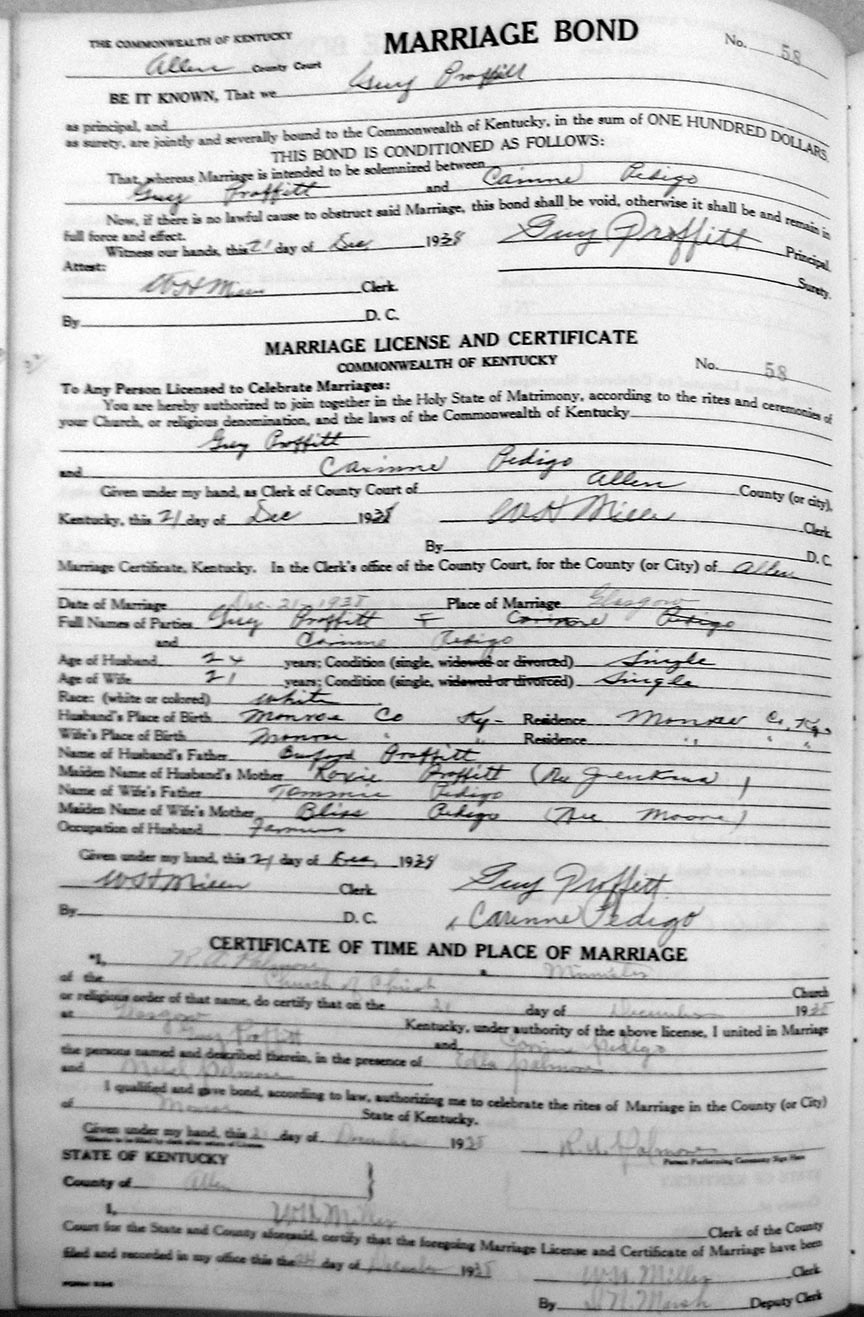 THE COMMONWEALTH OF KENTUCKY
MARRIAGE BOND
No. 58
Allen County Court
BE IT KNOWN, That we Guy Proffitt
as principal, and
as surety, are jointly and severally bound to the Commonwealth of Kentucky, in the sum of ONE HUNDRED DOLLARS.
THIS BOND IS CONDITIONED AS FOLLOWS:
That, whereas Marriage is intended to be solemnized between
Guy Proffitt and Corinne Pedigo
Now, if there is no lawful cause to obstruct said Marriage, this bond shall be void, otherwise it shall be and remain in
full force and effect.
Witness our hands, this 21 day of Dec, 1938 Guy Proffitt Principal.
Attest:
Surety.
WH Miller Clerk.
By D. C.
MARRIAGE LICENSE AND CERTIFICATE
COMMONWEALTH OF KENTUCKY
No. 58
To Any Person Licensed to Celebrate Marriages:
You are hereby authorized to join together in the Holy State of Matrimony, according to the rites and ceremonies of
your Church, or religious denomination, and the laws of the Commonwealth of Kentucky
Guy Proffitt
and Corinne Pedigo
Given under my hand, as Clerk of County Court of Allen County (or city),
Kentucky, this 21 day of Dec 1938 WH Miller Clerk
By D. C.
Marriage Certificate, Kentucky. In the Clerk's office of the County Court, for the County (or City) of Allen
Date of Marriage Dec. 21, 1938 Place of Marriage Glasgow
Full Names of Parties Guy Proffitt + Corinne Pedigo
and Corinne Pedigo
Age of Husband 24 years; Condition (single, widowed or divorced) Single
Age of Wife 21 years; Condition (single, widowed or divorced) Single
Race: (white or colored) White
Husband's Place of Birth Monroe Co Ky- Residence Monroe Co, Ky.
Wife's Place of Birth Monroe " " Residence " " "
Name of Husband's Father Buford Proffitt
Maiden Name of Husband's Mother Roxie Proffitt (Nee Jenkins)
Name of Wife's Father Tommie Pedigo
Maiden Name of Wife's Mother Bliss Pedigo (Nee Moore)
Occupation of Husband Farmer
Given under my hand, this 21 day of Dec, 1938
WH Miller Clerk Guy Proffitt
By D. C. Corinne Pedigo
CERTIFICATE OF TIME AND PLACE OF MARRIAGE
*I, R. A. Palmore a Minister
of the Church of Christ Church
or religious order of that name, do certify that on the 21 day of December 1938
at Glasgow Kentucky, under authority of the above license, I united in Marriage
Guy Proffitt and Corinne Pedigo
the persons named and described therein, in the presence of Edla Palmore
and Palmore
I qualified and gave bond, according to law, authorizing me to celebrate the rites of Marriage in the County (or City)
of Monroe State of Kentucky.
Given under my hand, this 21 day of December 1938 R. A. Palmore
Person Performing Ceremony Sign Here
STATE OF KENTUCKY
County of Allen
I, WH Miller Clerk of the County
Court for the State and County aforesaid, certify that the foregoing Marriage License and Certificate of Marriage have been
filed and recorded in my office this the 24 day of December 1938
W.H. Miller Clerk
By Deputy Clerk